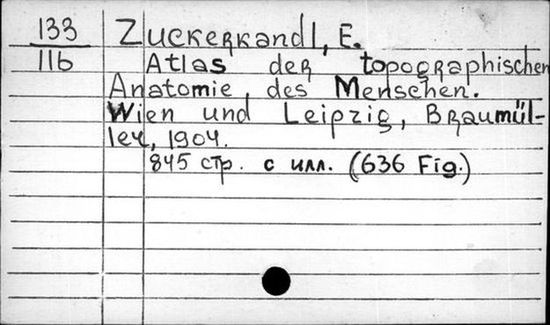 133 Zuckerkandl, E.
116 Atlas der topographischen
Anatomie des Menschen.
Wien und Leipzig, Braumül-
ler, 1904.
845 стр. с илл. (636 Fig.)